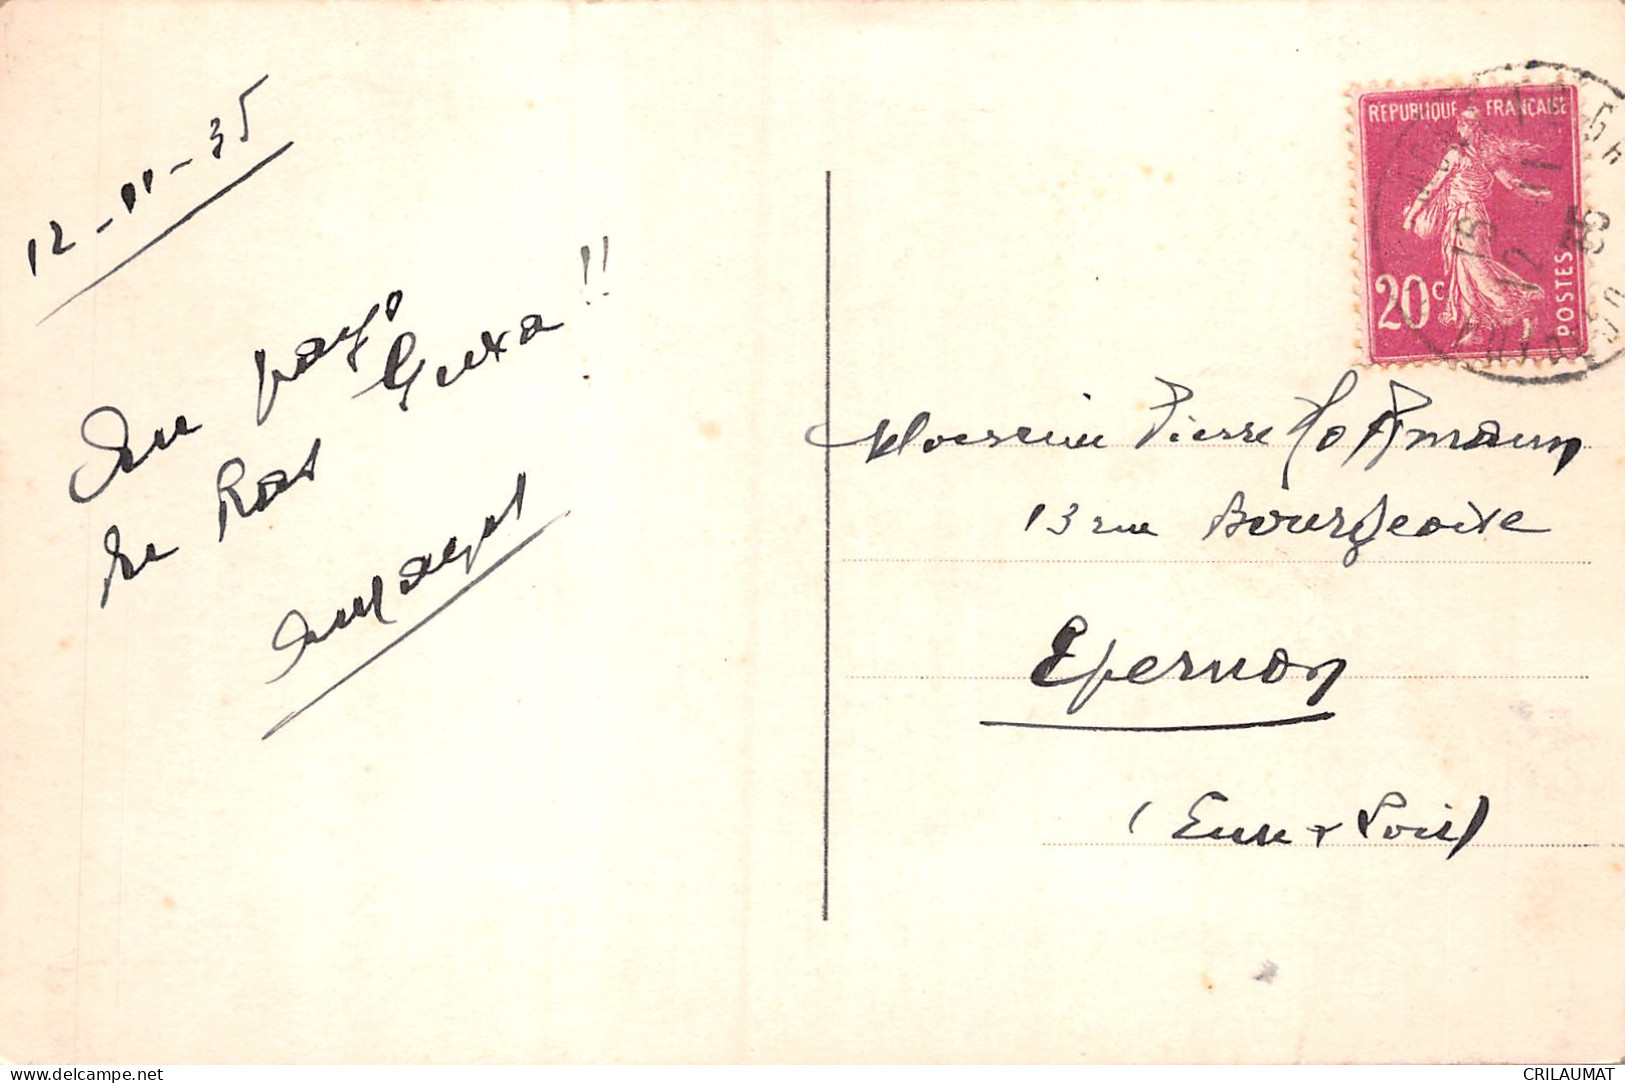 12-11-35
Au pays
de Ras Guxa !!
REPUBLIQUE FRANÇAISE
20c
POSTES
15
12 11
35
Monsieur Pierre Hoffmann
13 rue Bourgeoise
Epernon
(Eure & Loir)
CRILAUMAT